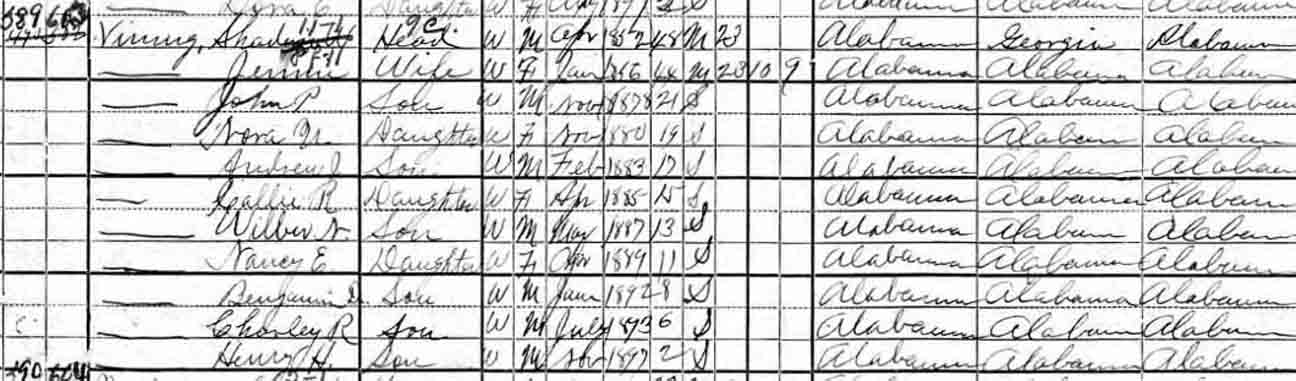 Dora E Daughter W F Aug 1897 S Alabama Alabama Alabama
589 Vining, Head W M Apr 1852 48 M 23 Alabama Georgia Alabama
— Jennie Wife W F Jan 1856 44 M 23 10 9 Alabama Alabama Alabama
— John P Son W M Nov 1878 21 S Alabama Alabama Alabama
— Nora Daughter W F Nov 1880 19 S Alabama Alabama Alabama
— Andrew J Son W M Feb 1883 17 S Alabama Alabama Alabama
— Callie R Daughter W F Apr 1885 15 S Alabama Alabama Alabama
— Wilber N. Son W M Mar 1887 13 S Alabama Alabama Alabama
— Nancy E Daughter W F Apr 1889 11 S Alabama Alabama Alabama
— Benjamin D Son W M Jan 1892 8 S Alabama Alabama Alabama
— Charley R Son W M July 1893 6 S Alabama Alabama Alabama
— Henry H. Son W M Nov 1897 2 S Alabama Alabama Alabama